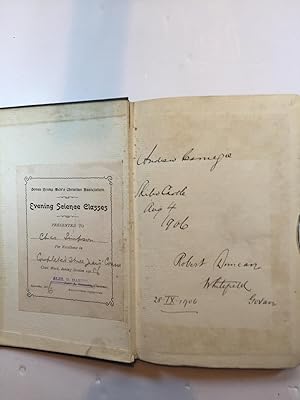 Govan Young Men's Christian Association.
Evening Science Classes
PRESENTED TO
Chas Simpson
For Excellence in
Class Work, during Session 190
Andrew Carnegie
Skibo Castle
Aug 4
1906
Robert Duncan
Whitefield
Govan
28 IX 1906